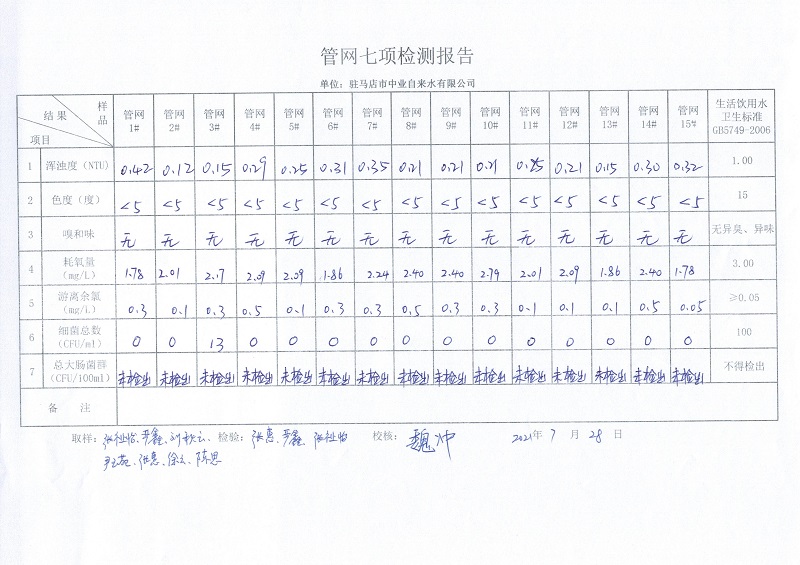 管网七项检测报告
单位：驻马店市中业自来水有限公司
结果 样品 项目 管网1# 管网2# 管网3# 管网4# 管网5# 管网6# 管网7# 管网8# 管网9# 管网10# 管网11# 管网12# 管网13# 管网14# 管网15# 生活饮用水卫生标准GB5749-2006
1 浑浊度（NTU） 0.42 0.12 0.15 0.29 0.25 0.31 0.35 0.21 0.21 0.21 0.25 0.21 0.15 0.30 0.32 1.00
2 色度（度） <5 <5 <5 <5 <5 <5 <5 <5 <5 <5 <5 <5 <5 <5 <5 15
3 嗅和味 无 无 无 无 无 无 无 无 无 无 无 无 无 无 无 无异臭、异味
4 耗氧量（mg/L） 1.78 2.01 2.17 2.09 2.09 1.86 2.24 2.40 2.40 2.79 2.01 2.09 1.86 2.40 1.78 3.00
5 游离余氯（mg/L） 0.3 0.1 0.3 0.5 0.1 0.3 0.3 0.5 0.3 0.3 0.1 0.1 0.1 0.5 0.05 ≥0.05
6 细菌总数（CFU/ml） 0 0 13 0 0 0 0 0 0 0 0 0 0 0 0 100
7 总大肠菌群（CFU/100ml） 未检出 未检出 未检出 未检出 未检出 未检出 未检出 未检出 未检出 未检出 未检出 未检出 未检出 未检出 未检出 不得检出
备 注
取样： 检验： 校核：魏冲 2021年 7 月 28 日